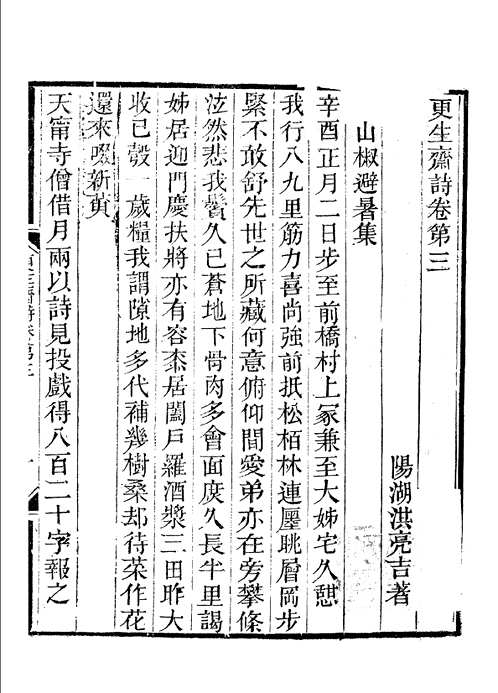 更生齋詩卷第三
陽湖洪亮吉著
山椒避暑集
辛酉正月二日步至前橋村上冢兼至大姊宅久憇
我行八九里筋力喜尚強前抵松栢林連屢眺層岡步
緊不敢舒先世之所藏何意俯仰間愛弟亦在旁攀條
泫然悲我鬢久已蒼地下骨肉多會面庻久長半里謁
姊居迎門慶扶將亦有容桼居闔戸羅酒漿三田昨大
收已榖一歲糧我謂隙地多代補幾樹桑却待菜作花
還來啜新黃
天甯寺僧借月兩以詩見投戲得八百二十字報之
更生齋詩卷第三
一